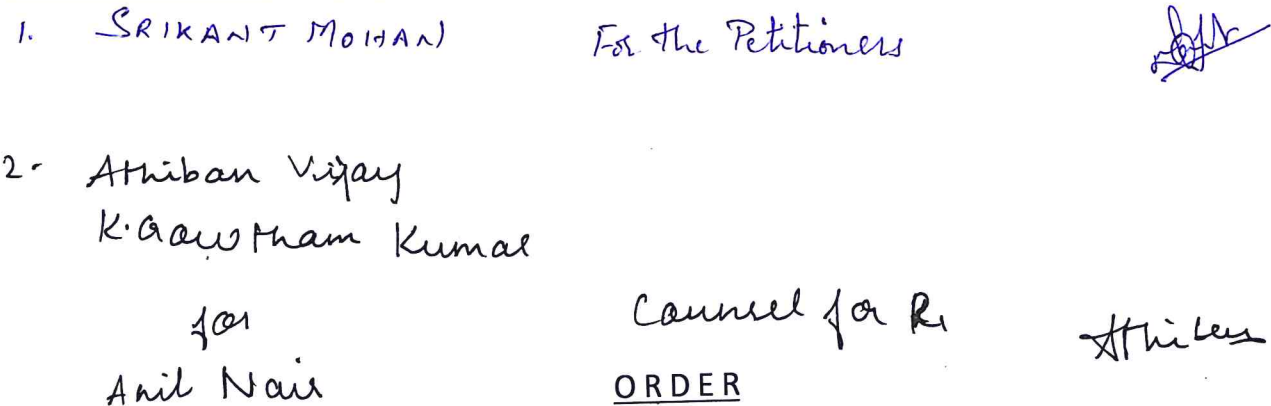 1. SRIKANT MOHAN For the Petitioners
2- Athiban Vijay
K. Gowtham Kumar
for Counsel for R1 Athiban
Anil Nair ORDER